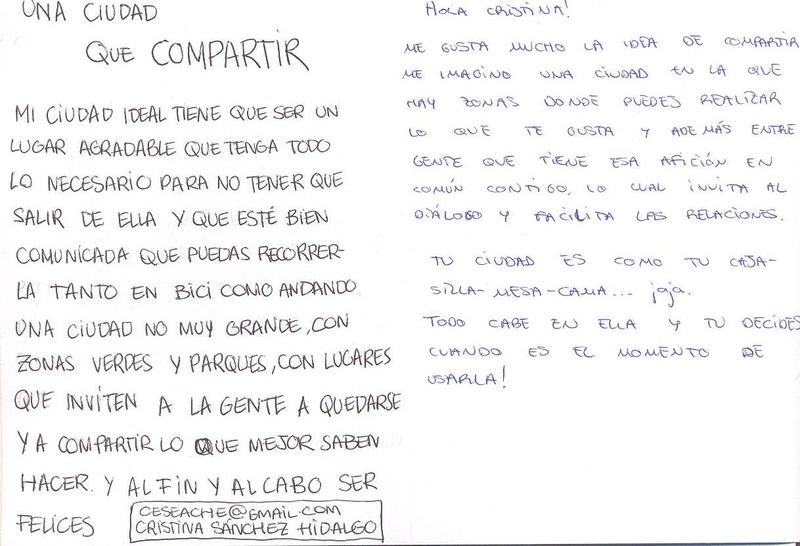 UNA CIUDAD
QUE COMPARTIR
MI CIUDAD IDEAL TIENE QUE SER UN
LUGAR AGRADABLE QUE TENGA TODO
LO NECESARIO PARA NO TENER QUE
SALIR DE ELLA Y QUE ESTÉ BIEN
COMUNICADA QUE PUEDAS RECORRER-
LA TANTO EN BICI COMO ANDANDO
UNA CIUDAD NO MUY GRANDE, CON
ZONAS VERDES Y PARQUES, CON LUGARES
QUE INVITEN A LA GENTE A QUEDARSE
Y A COMPARTIR LO QUE MEJOR SABEN
HACER. Y AL FIN Y AL CABO SER
FELICES
CESEACHE@GMAIL.COM
CRISTINA SÁNCHEZ HIDALGO
HOLA CRISTINA!
ME GUSTA MUCHO LA IDEA DE COMPARTIR
ME IMAGINO UNA CIUDAD EN LA QUE
HAY ZONAS DONDE PUEDES REALIZAR
LO QUE TE GUSTA Y ADEMÁS ENTRE
GENTE QUE TIENE ESA AFICIÓN EN
COMÚN CONTIGO, LO CUAL INVITA AL
DIÁLOGO Y FACILITA LAS RELACIONES.
TU CIUDAD ES COMO TU CAJA-
SILLA-MESA-CAMA... ¡aja.
TODO CABE EN ELLA Y TU DECIDES
CUANDO ES EL MOMENTO DE
USARLA!